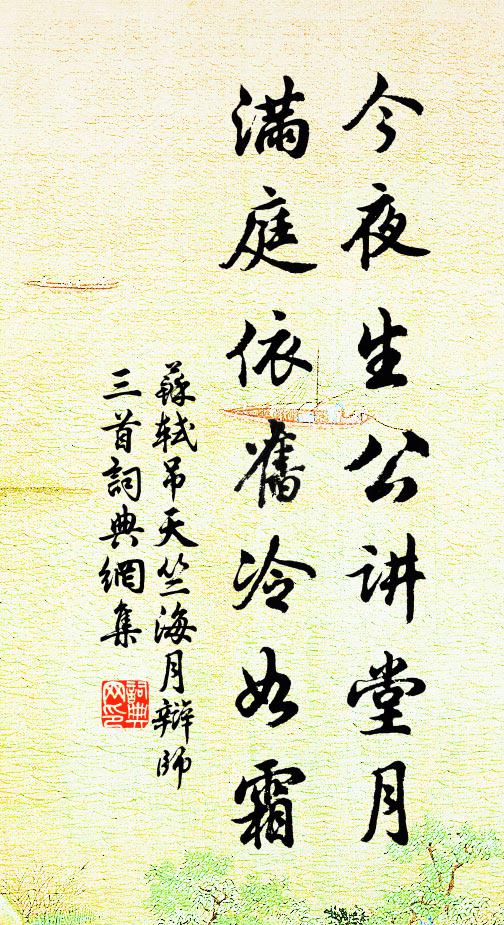 今夜生公讲堂月
满庭依舊冷如霜
蘇轼吊天竺海月辯师
三首詞典網集
詞典
网印